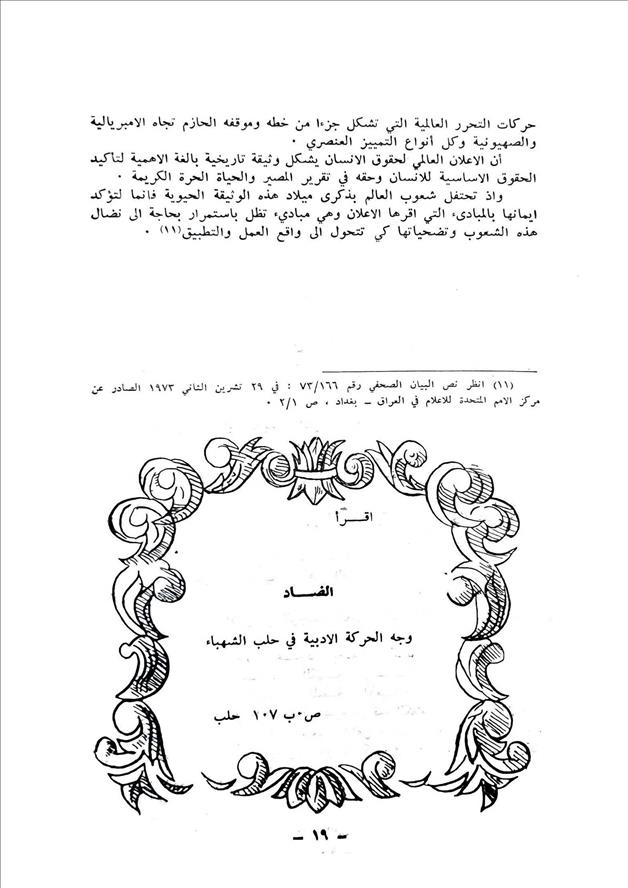 حركات التحرر العالمية التي تشكل جزءا من خطه وموقفه الحازم تجاه الامبريالية
والصهيونية وكل أنواع التمييز العنصري .
أن الاعلان العالمي لحقوق الانسان يشكل وثيقة تاريخية بالغة الاهمية لتأكيد
الحقوق الاساسية للانسان وحقه في تقرير المصير والحياة الحرة الكريمة .
واذ تحتفل شعوب العالم بذكرى ميلاد هذه الوثيقة الحيوية فانما لتؤكد
ايمانها بالمبادىء التي اقرها الاعلان وهي مباديء تظل باستمرار بحاجة الى نضال
هذه الشعوب وتضحياتها كي تتحول الى واقع العمل والتطبيق(١١) .
(١١) انظر نص البيان الصحفي رقم ٧٣/١٦٦ : في ٢٩ تشرين الثاني ١٩٧٣ الصادر عن
مركز الامم المتحدة للاعلام في العراق ــ بغداد ، ص ٢/١ .
اقــرأ
الضـــاد
وجه الحركة الادبية في حلب الشهباء
ص.ب ١٠٧ حلب
ــ ١٩ ــ